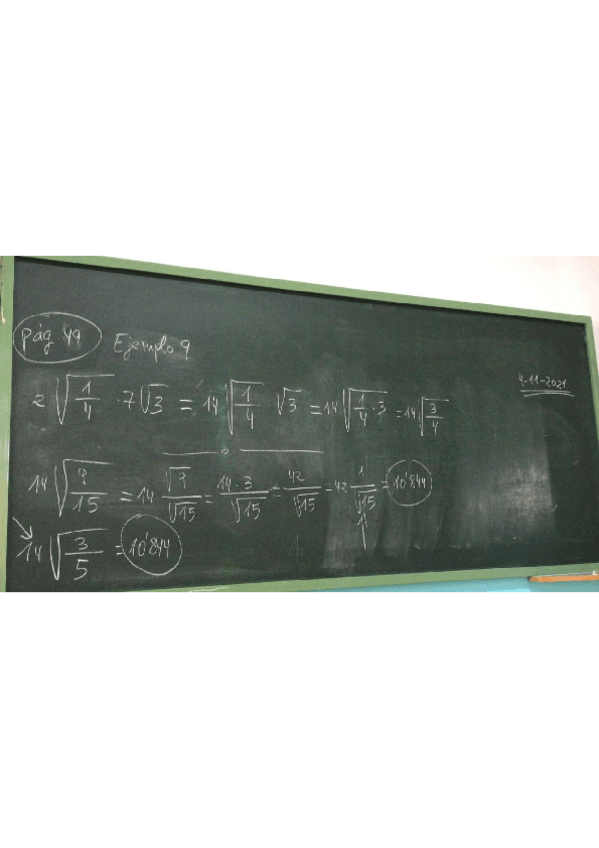 pág. 49 Ejemplo 9
4-11-2021
2 √(1/4) · 7√3 = 14 √(1/4) · √3 = 14 √(1/4 · 3) = 14 √(3/4)
14 √(9/15) = 14 √9/√15 = 14·3/√15 = 42/√15 = 42 1/√15 = 10'844
14 √(3/5) = 10'844